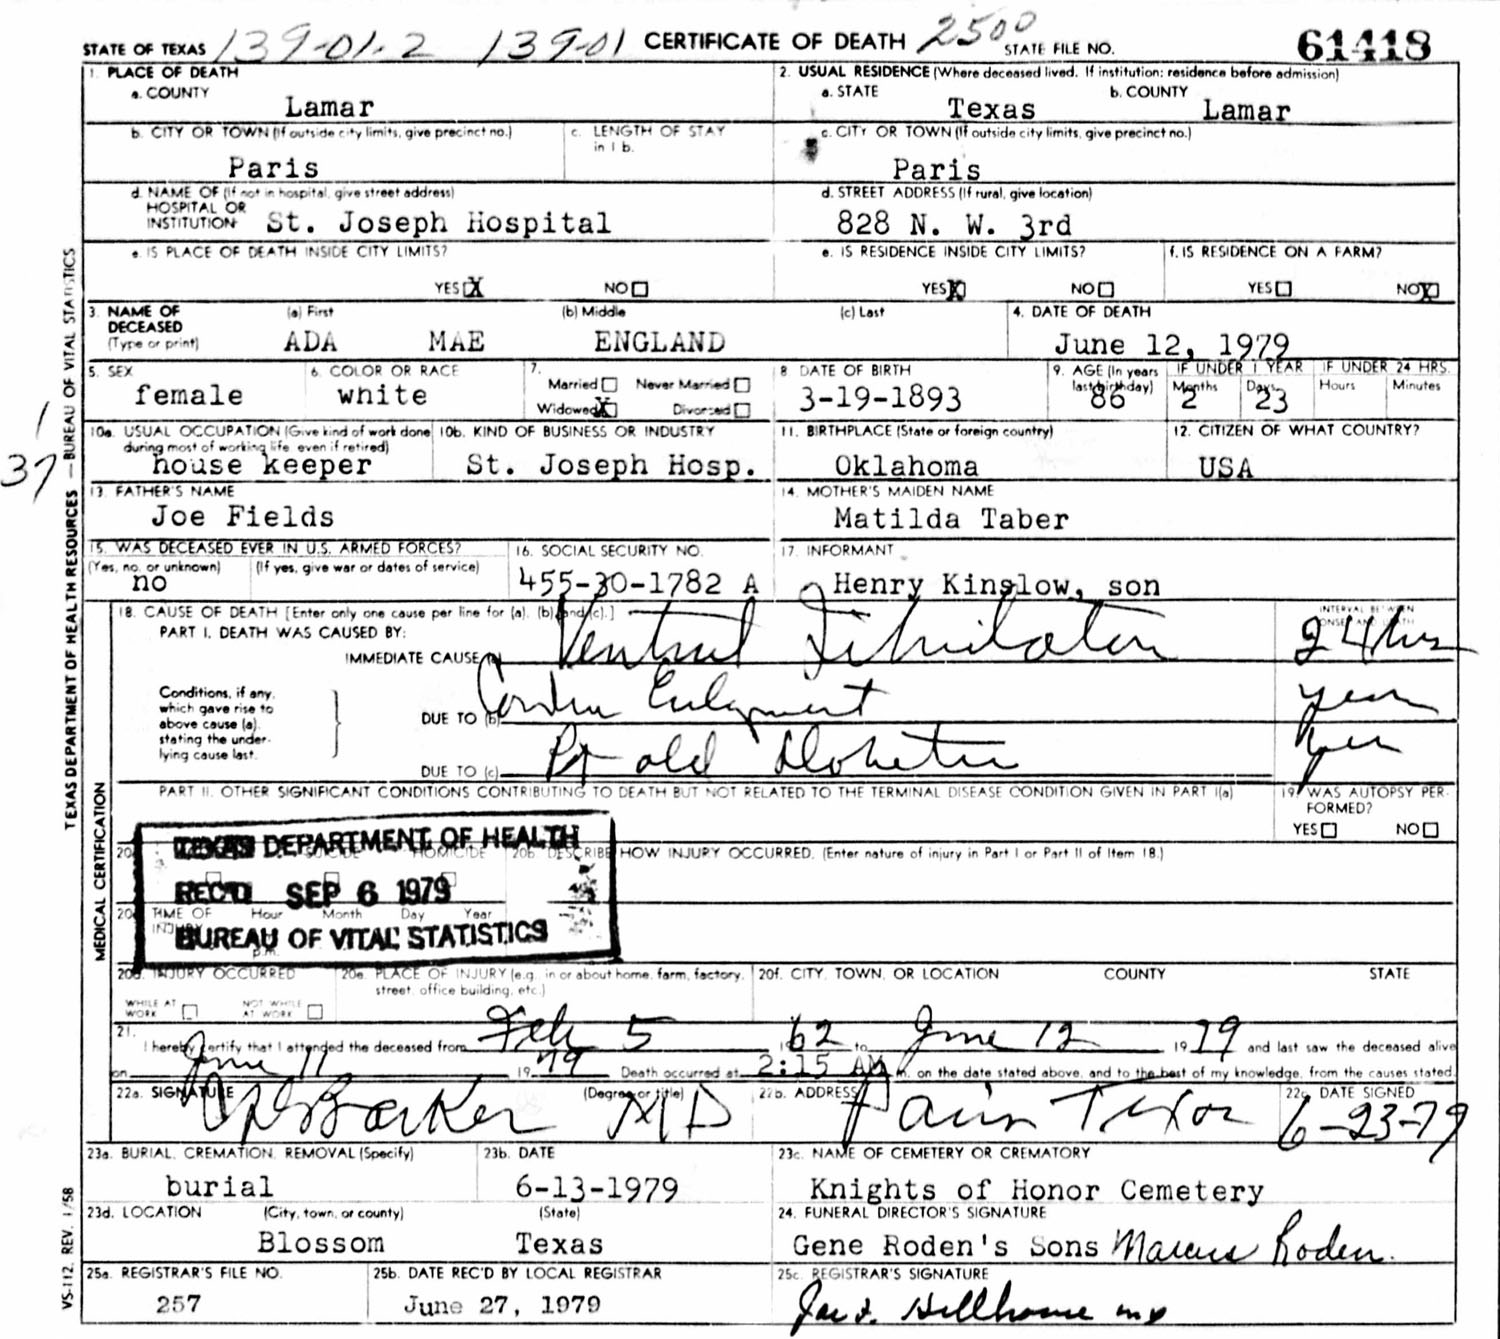 STATE OF TEXAS 139-01-2 139-01 CERTIFICATE OF DEATH 2500 STATE FILE NO. 61418
1. PLACE OF DEATH
a. COUNTY
Lamar
2. USUAL RESIDENCE (Where deceased lived. If institution: residence before admission)
a. STATE b. COUNTY
Texas Lamar
b. CITY OR TOWN (If outside city limits, give precinct no.)
Paris
c. LENGTH OF STAY
in 1 b.
c. CITY OR TOWN (If outside city limits, give precinct no.)
Paris
d. NAME OF (If not in hospital, give street address)
HOSPITAL OR
INSTITUTION St. Joseph Hospital
d. STREET ADDRESS (If rural, give location)
828 N. W. 3rd
e. IS PLACE OF DEATH INSIDE CITY LIMITS?
YES X NO
e. IS RESIDENCE INSIDE CITY LIMITS?
YES X NO
f. IS RESIDENCE ON A FARM?
YES NO X
3. NAME OF
DECEASED
(Type or print)
(a) First (b) Middle (c) Last
ADA MAE ENGLAND
4. DATE OF DEATH
June 12, 1979
5. SEX
female
6. COLOR OR RACE
white
7.
Married Never Married
Widowed X Divorced
8 DATE OF BIRTH
3-19-1893
9. AGE (In years
last birthday)
86
IF UNDER 1 YEAR
Months Days
2 23
IF UNDER 24 HRS.
Hours Minutes
10a. USUAL OCCUPATION (Give kind of work done
during most of working life, even if retired)
house keeper
10b. KIND OF BUSINESS OR INDUSTRY
St. Joseph Hosp.
11. BIRTHPLACE (State or foreign country)
Oklahoma
12. CITIZEN OF WHAT COUNTRY?
USA
13. FATHER'S NAME
Joe Fields
14. MOTHER'S MAIDEN NAME
Matilda Taber
15. WAS DECEASED EVER IN U.S. ARMED FORCES?
(Yes, no, or unknown) (If yes, give war or dates of service)
no
16. SOCIAL SECURITY NO.
455-30-1782 A
17. INFORMANT
Henry Kinslow, son
18. CAUSE OF DEATH [Enter only one cause per line for (a), (b), and (c).]
PART I. DEATH WAS CAUSED BY:
INTERVAL BETWEEN
ONSET AND DEATH
IMMEDIATE CAUSE (a) 24 hrs
Conditions, if any,
which gave rise to
above cause (a),
stating the under-
lying cause last.
DUE TO (b)
DUE TO (c) old
PART II. OTHER SIGNIFICANT CONDITIONS CONTRIBUTING TO DEATH BUT NOT RELATED TO THE TERMINAL DISEASE CONDITION GIVEN IN PART I(a)
19. WAS AUTOPSY PER-
FORMED?
YES NO
TEXAS DEPARTMENT OF HEALTH
REC'D SEP 6 1979
BUREAU OF VITAL STATISTICS
SUICIDE HOMICIDE
20b. DESCRIBE HOW INJURY OCCURRED. (Enter nature of injury in Part I or Part II of Item 18.)
TIME OF Hour Month Day Year
INJURY
p.m.
20d. INJURY OCCURRED
WHILE AT
WORK
NOT WHILE
AT WORK
20e. PLACE OF INJURY (e.g., in or about home, farm, factory,
street, office building, etc.)
20f. CITY, TOWN, OR LOCATION COUNTY STATE
21.
I hereby certify that I attended the deceased from Feb 5 1962 to June 12 1979 and last saw the deceased alive
on June 11 1979 Death occurred at 2:15 AM m. on the date stated above, and to the best of my knowledge, from the causes stated.
22a. SIGNATURE (Degree or title)
Barker MD
22b. ADDRESS
Paris Texas
22c. DATE SIGNED
6-23-79
23a. BURIAL, CREMATION, REMOVAL (Specify)
burial
23b. DATE
6-13-1979
23c. NAME OF CEMETERY OR CREMATORY
Knights of Honor Cemetery
23d. LOCATION (City, town, or county) (State)
Blossom Texas
24. FUNERAL DIRECTOR'S SIGNATURE
Gene Roden's Sons Marcus Roden.
25a. REGISTRAR'S FILE NO.
257
25b. DATE REC'D BY LOCAL REGISTRAR
June 27, 1979
25c. REGISTRAR'S SIGNATURE
Hillhouse MD
TEXAS DEPARTMENT OF HEALTH RESOURCES — BUREAU OF VITAL STATISTICS
MEDICAL CERTIFICATION
VS-112, REV. 1/58
1
37